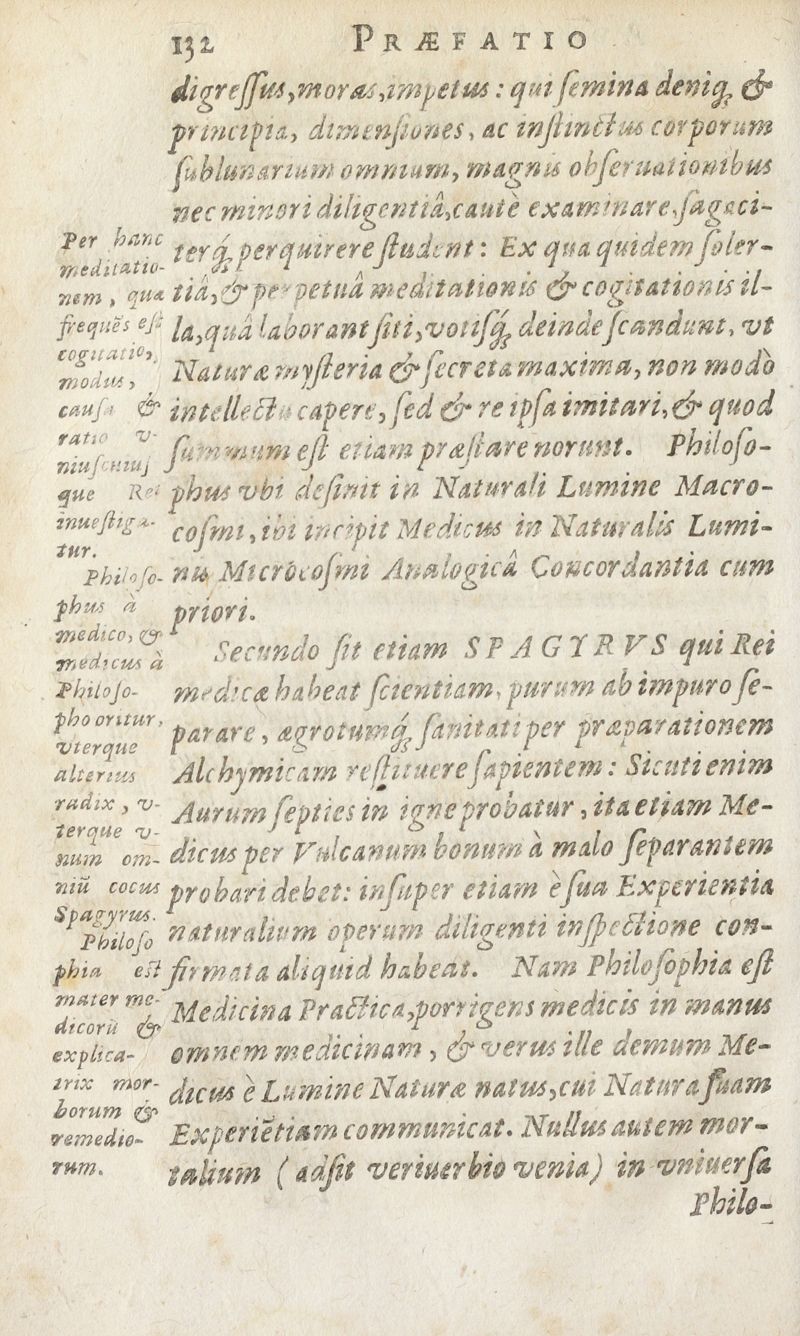 132 PRÆFATIO
digreſſus, moras, impetus : qui ſemina deniq; &
principia, dimenſiones, ac inſtinctus corporum
ſublunarium omnium, magnis obſeruationibus
nec minori diligentiâ, cautè examinare, ſagaci-
terq́; perquirere ſtudent : Ex qua quidem ſoler-
tiâ, & perpetuâ meditationis & cogitationis il-
la, quâ laborant ſiti, votiſq́; deinde ſcandunt, vt
Naturæ myſteria & ſecreta maxima, non modò
intellectu capere, ſed & re ipſa imitari, & quod
ſummum eſt etiam præſtare norunt. Philoſo-
phus vbi deſinit in Naturali Lumine Macro-
coſmi, ibi incipit Medicus in Naturalis Lumi-
nis Microcoſmi Analogicâ Concordantia cum
priori.
Secundo ſit etiam SPAGYRVS qui Rei
medicæ habeat ſcientiam, purum ab impuro ſe-
parare, ægrotumq́; ſanitati per præparationem
Alchymicam reſtituere ſapientem : Sicuti enim
Aurum ſepties in igne probatur, ita etiam Me-
dicus per Vulcanum bonum à malo ſeparantem
probari debet: inſuper etiam è ſua Experientia
naturalium operum diligenti inſpectione con-
firmata aliquid habeat. Nam Philoſophia eſt
Medicina Practica, porrigens medicis in manus
omnem medicinam, & verus ille demum Me-
dicus è Lumine Naturæ natus, cui Natura ſuam
Experiētiam communicat. Nullus autem mor-
talium ( adſit veriuerbio venia) in vniuerſa
Philo-
Per hanc
meditatio-
nem, qua
frequēs eſt
cogitatio,
modus,
cauſa &
ratio v-
niuſcuiuſ
que Rei
inueſtiga-
tur.
Philoſo-
phus à
medico, &
medicus à
Philoſo-
pho oritur,
vterque
alterius
radix, v-
terque v-
num om-
niū cocus
Spagyrus.
Philoſo
phia eſt
mater me-
dicorū &
explica-
trix mor-
borum &
remedio-
rum.